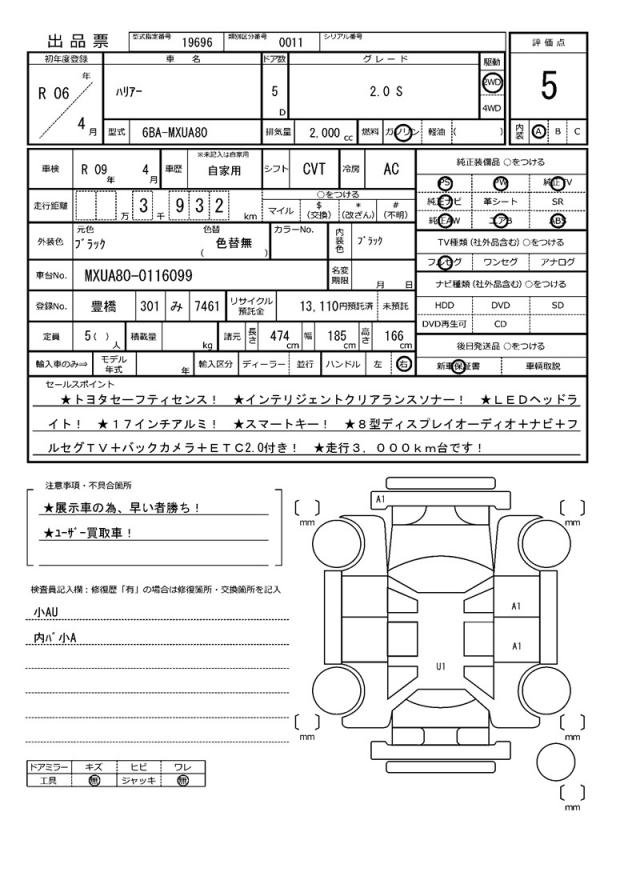 出品票
型式指定番号 19696 類別区分番号 0011 シリアル番号
評価点
初年度登録 車名 ドア数 グレード 駆動
R 06 年 4月 ハリアー 5 D 2.0 S 2WD 4WD
5
型式 6BA-MXUA80 排気量 2,000 cc 燃料 ガソリン 軽油 ( )
内装 A B C
車検 R 09 年 4 月 車歴 ※未記入は自家用 自家用 シフト CVT 冷房 AC
純正装備品 ○をつける
PS PW 純正TV
純正ナビ 革シート SR
純正AW エアB ABS
走行距離 万 3 千 9 3 2 km
○をつける
マイル $ (交換) * (改ざん) # (不明)
外装色 元色 ブラック 色替 ( 色替無 ) カラーNo. 内装色 ブラック
TV種類 (社外品含む) ○をつける
フルセグ ワンセグ アナログ
車台No. MXUA80-0116099 名変期限 月 日
ナビ種類 (社外品含む) ○をつける
HDD DVD SD
DVD再生可 CD
登録No. 豊橋 301 み 7461 リサイクル預託金 13,110円預託済 未預託
定員 5( ) 人 積載量 kg 諸元 長さ 474 cm 幅 185 cm 高さ 166 cm
後日発送品 ○をつける
新車保証書 車輌取説
輸入車のみ⇒ モデル年式 年 輸入区分 ディーラー 並行 ハンドル 左 右
セールスポイント
★トヨタセーフティセンス! ★インテリジェントクリアランスソナー! ★LEDヘッドラ
イト! ★17インチアルミ! ★スマートキー! ★8型ディスプレイオーディオ+ナビ+フ
ルセグTV+バックカメラ+ETC2.0付き! ★走行3,000km台です!
注意事項・不具合箇所
★展示車の為、早い者勝ち!
★ユーザー買取車!
検査員記入欄:修復歴「有」の場合は修復箇所・交換箇所を記入
小AU
内バ小A
A1
mm
mm
A1
A1
U1
mm
mm
mm
ドアミラー キズ ヒビ ワレ
工具 無 ジャッキ 無